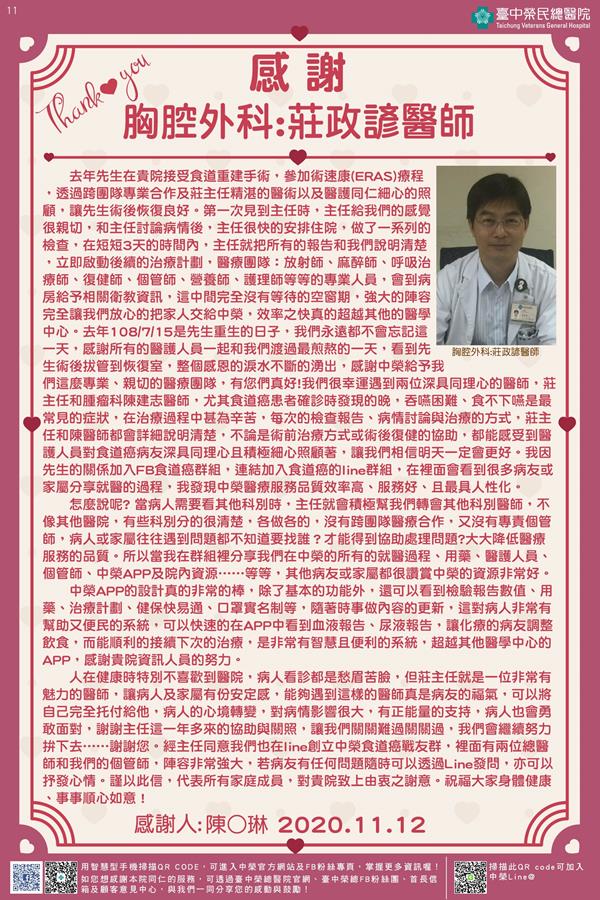 11
臺中榮民總醫院
Taichung Veterans General Hospital
Thank you
感謝
胸腔外科:莊政諺醫師
去年先生在貴院接受食道重建手術，參加術速康(ERAS)療程
，透過跨團隊專業合作及莊主任精湛的醫術以及醫護同仁細心的照
顧，讓先生術後恢復良好。第一次見到主任時，主任給我們的感覺
很親切，和主任討論病情後，主任很快的安排住院，做了一系列的
檢查，在短短3天的時間內，主任就把所有的報告和我們說明清楚
，立即啟動後續的治療計劃，醫療團隊：放射師、麻醉師、呼吸治
療師、復健師、個管師、營養師、護理師等等的專業人員，會到病
房給予相關衛教資訊，這中間完全沒有等待的空窗期，強大的陣容
完全讓我們放心的把家人交給中榮，效率之快真的超越其他的醫學
中心。去年108/7/15是先生重生的日子，我們永遠都不會忘記這
一天，感謝所有的醫護人員一起和我們渡過最煎熬的一天，看到先
生術後拔管到恢復室，整個感恩的淚水不斷的湧出，感謝中榮給予我
胸腔外科:莊政諺醫師
們這麼專業、親切的醫療團隊，有您們真好!我們很幸運遇到兩位深具同理心的醫師，莊
主任和腫瘤科陳建志醫師，尤其食道癌患者確診時發現的晚，吞嚥困難、食不下嚥是最
常見的症狀，在治療過程中甚為辛苦，每次的檢查報告、病情討論與治療的方式，莊主
任和陳醫師都會詳細說明清楚，不論是術前治療方式或術後復健的協助，都能感受到醫
護人員對食道癌病友深具同理心且積極細心照顧著，讓我們相信明天一定會更好。我因
先生的關係加入FB食道癌群組，連結加入食道癌的line群組，在裡面會看到很多病友或
家屬分享就醫的過程，我發現中榮醫療服務品質效率高、服務好、且最具人性化。
怎麼說呢? 當病人需要看其他科別時，主任就會積極幫我們轉會其他科別醫師，不
像其他醫院，有些科別分的很清楚，各做各的，沒有跨團隊醫療合作，又沒有專責個管
師，病人或家屬往往遇到問題都不知道要找誰？才能得到協助處理問題?大大降低醫療
服務的品質。所以當我在群組裡分享我們在中榮的所有的就醫過程、用藥、醫護人員、
個管師、中榮APP及院內資源⋯⋯等等，其他病友或家屬都很讚賞中榮的資源非常好。
中榮APP的設計真的非常的棒，除了基本的功能外，還可以看到檢驗報告數值、用
藥、治療計劃、健保快易通、口罩實名制等，隨著時事做內容的更新，這對病人非常有
幫助又便民的系統，可以快速的在APP中看到血液報告、尿液報告，讓化療的病友調整
飲食，而能順利的接續下次的治療，是非常有智慧且便利的系統，超越其他醫學中心的
APP，感謝貴院資訊人員的努力。
人在健康時特別不喜歡到醫院，病人看診都是愁眉苦臉，但莊主任就是一位非常有
魅力的醫師，讓病人及家屬有份安定感，能夠遇到這樣的醫師真是病友的福氣，可以將
自己完全托付給他，病人的心境轉變，對病情影響很大，有正能量的支持，病人也會勇
敢面對，謝謝主任這一年多來的協助與關照，讓我們關關難過關關過，我們會繼續努力
拚下去⋯⋯謝謝您。經主任同意我們也在line創立中榮食道癌戰友群，裡面有兩位總醫
師和我們的個管師，陣容非常強大，若病友有任何問題隨時可以透過Line發問，亦可以
抒發心情。謹以此信，代表所有家庭成員，對貴院致上由衷之謝意。祝福大家身體健康
、事事順心如意！
感謝人:陳〇琳 2020.11.12
用智慧型手機掃描QR CODE，可進入中榮官方網站及FB粉絲專頁，掌握更多資訊喔!
如您想感謝本院同仁的服務，可透過臺中榮總醫院官網、臺中榮總FB粉絲團、首長信
箱及顧客意見中心，與我們一同分享您的感動與鼓勵！
掃描此QR code可加入
中榮Line@